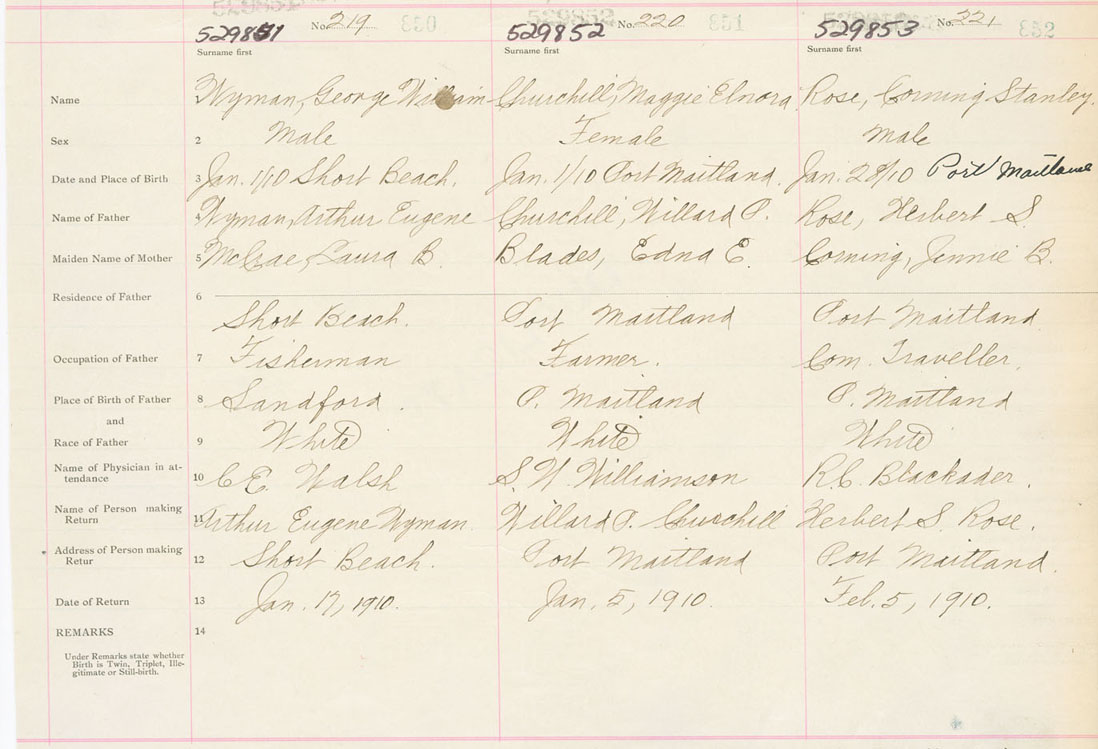 529851 No. 219 330 529852 529852 No. 220 331 529853 No. 221 332
Surname first Surname first Surname first
Name 1 Wyman, George William Churchill, Maggie Elnora Rose, Corning Stanley.
Sex 2 Male Female Male
Date and Place of Birth 3 Jan. 1/10 Short Beach. Jan. 1/10 Port Maitland. Jan. 28/10 Port Maitland
Name of Father Wyman, Arthur Eugene Churchill, Willard P. Rose, Herbert S.
Maiden Name of Mother 5 McCrae, Laura B. Blades, Edna E. Corning, Jennie B.
Residence of Father 6
Short Beach. Port Maitland Port Maitland.
Occupation of Father 7 Fisherman Farmer. Com. Traveller.
Place of Birth of Father 8 Sandford. P. Maitland P. Maitland
and
Race of Father 9 White White White
Name of Physician in at-
tendance 10 C E. Walsh S. W. Williamson R.C. Blackader.
Name of Person making
Return 11 Arthur Eugene Wyman. Willard P. Churchill Herbert S. Rose.
Address of Person making
Retur 12 Short Beach. Port Maitland Port Maitland.
Date of Return 13 Jan. 17, 1910. Jan. 5, 1910. Feb. 5, 1910.
REMARKS 14
Under Remarks state whether
Birth is Twin, Triplet, Ille-
gitimate or Still-birth.